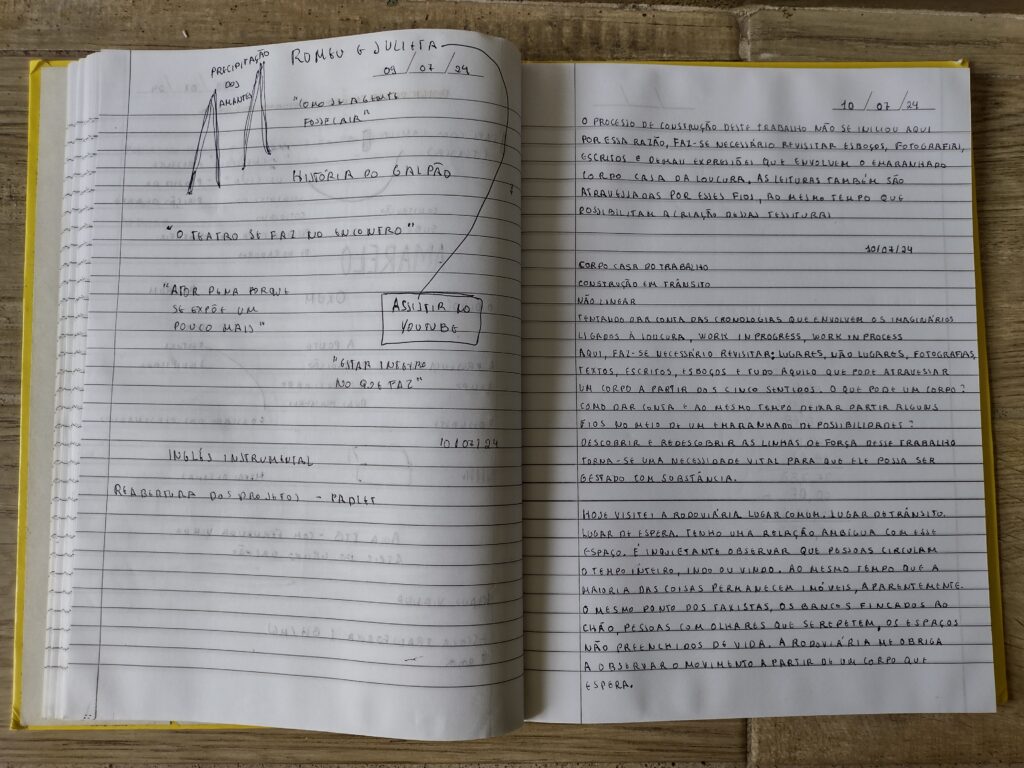 PRECIPITAÇÃO
DOS
AMANTES
ROMEU E JULIETA
09 / 07 / 24
"COMO SE A GENTE
FOSSE CAIR"
HISTÓRIA DO GALPÃO
"O TEATRO SE FAZ NO ENCONTRO"
"ATOR PENA PORQUE
SE EXPÕE UM
POUCO MAIS"
ASSISTIR NO
YOUTUBE
"ESTAR INTEIRO
NO QUE FAZ"
10/07/24
INGLÊS INSTRUMENTAL
REABERTURA DOS PROJETOS - PADLET
10 / 07 / 24
O PROCESSO DE CONSTRUÇÃO DESTE TRABALHO NÃO SE INICIOU AQUI
POR ESSA RAZÃO, FAZ-SE NECESSÁRIO REVISITAR ESBOÇOS, FOTOGRAFIAS,
ESCRITOS E DEMAIS EXPRESSÕES QUE ENVOLVEM O EMARANHADO
CORPO CASA DA LOUCURA. AS LEITURAS TAMBÉM SÃO
ATRAVESSADAS POR ESSES FIOS, AO MESMO TEMPO QUE
POSSIBILITAM A CRIAÇÃO DESSAS TESSITURAS
10/07/24
CORPO CASA DO TRABALHO
CONSTRUÇÃO EM TRÂNSITO
NÃO LINEAR
TENTANDO DAR CONTA DAS CRONOLOGIAS QUE ENVOLVEM OS IMAGINÁRIOS
LIGADOS À LOUCURA, WORK IN PROGRESS, WORK IN PROCESS
AQUI, FAZ-SE NECESSÁRIO REVISITAR: LUGARES, NÃO LUGARES, FOTOGRAFIAS,
TEXTOS, ESCRITOS, ESBOÇOS E TUDO AQUILO QUE PODE ATRAVESSAR
UM CORPO A PARTIR DOS CINCO SENTIDOS. O QUE PODE UM CORPO?
COMO DAR CONTA E AO MESMO TEMPO DEIXAR PARTIR ALGUNS
FIOS NO MEIO DE UM EMARANHADO DE POSSIBILIDADES?
DESCOBRIR E REDESCOBRIR AS LINHAS DE FORÇA DESSE TRABALHO
TORNA-SE UMA NECESSIDADE VITAL PARA QUE ELE POSSA SER
GESTADO COM SUBSTÂNCIA.
HOJE VISITEI A RODOVIÁRIA LUGAR COMUM. LUGAR DE TRÂNSITO.
LUGAR DE ESPERA. TENHO UMA RELAÇÃO AMBÍGUA COM ESSE
ESPAÇO. É INQUIETANTE OBSERVAR QUE PESSOAS CIRCULAM
O TEMPO INTEIRO, INDO OU VINDO. AO MESMO TEMPO QUE A
MAIORIA DAS COISAS PERMANECEM IMÓVEIS, APARENTEMENTE.
O MESMO PONTO DOS TAXISTAS, OS BANCOS FINCADOS AO
CHÃO, PESSOAS COM OLHARES QUE SE REPETEM, OS ESPAÇOS
NÃO PREENCHIDOS DE VIDA. A RODOVIÁRIA ME OBRIGA
A OBSERVAR O MOVIMENTO A PARTIR DE UM CORPO QUE
ESPERA.